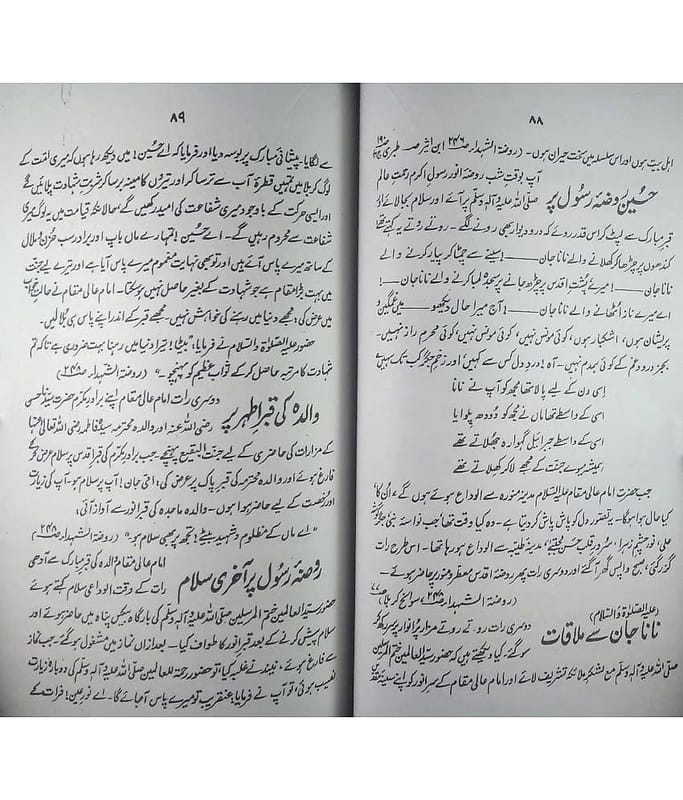 ۸۸
اہل بیت ہوں اور اس سلسلہ میں سخت حیران ہوں۔ (روضۃ الشہداء ص۲۴۶ ابن اثیر ص طبری ص۱۹۰)
حسینؓ روضۂ رسولؐ پر
آپ بوقت شب روضۂ انور رسولِ اکرم رحمتِ عالم
صلی اللہ علیہ وآلہٖ وسلم پر آئے اور سلام بجا لائے اور
قبرِ مبارک سے لپٹ کر اس قدر روئے کہ در و دیوار بھی رونے لگے۔ روتے روتے یہ کہتے تھے
کندھوں پر چڑھا کر کھلانے والے نانا جان ——! سینے سے چمٹا کر پیار کرنے والے
نانا جان ——! میرے پشتِ اقدس پر چڑھ جانے پر سجدہ لمبا کرنے والے نانا جان ——!
اے میرے ناز اُٹھانے والے نانا جان ——! آج میرا حال دیکھو میں غمگین و
پریشان ہوں، اشکبار ہوں، کوئی مونس نہیں، کوئی مونس نہیں، کوئی محرمِ راز نہیں۔
بجز درد و غم کے کوئی ہمدم نہیں۔ آہ! دردِ دل کس سے کہیں! اور زخمِ جگر کب تک سہیں
اِسی دن کے لیے پالا تھا مجھ کو آپ نے نانا
اسی کے واسطے تھا ماں نے مجھ کو دودھ پلوایا
اسی کے واسطے جبرائیل گہوارہ جھلاتے تھے
ہمیشہ میوے جنت کے مجھے لا کر کھلاتے تھے
جب حضرت امام عالی مقام علیہ السلام مدینہ منورہ سے الوداع ہوئے ہوں گے، اُن کا
کیا حال ہوا ہوگا۔ یہ تصور دل کو پاش پاش کر دیتا ہے۔ وہ کیا وقت تھا جب نواسۂ نبی جگر گوشہ
علی، نورِ چشمِ زہرا، سرورِ قلبِ حسن مجتبیٰ، مدینہ طیبہ سے الوداع ہو رہا تھا۔ اس طرح رات
گزر گئی، صبح واپس گھر آگئے اور دوسری رات پھر روضۂ اقدس معطر و منور پر حاضر ہوئے۔
(روضۃ الشہداء ص۲۴۸ سوانح کربلا ص۷۷)
(علیہ الصلوٰۃ والسلام)
نانا جان سے ملاقات
دوسری رات روتے روتے مزارِ پُر انوار پر سر رکھ کر
سو گئے۔ کیا دیکھتے ہیں کہ حضور سید العالمین ختم المرسلین
صلی اللہ علیہ وآلہٖ وسلم مع لشکرِ ملائکہ تشریف لائے اور امام عالی مقام کے سرِ انور کو اپنے سینۂ مقدس
۸۹
سے لگایا۔ پیشانی مبارک پر بوسہ دیا اور فرمایا کہ اے حسین! میں دیکھ رہا ہوں کہ میری امت کے
لوگ کربلا میں تمہیں قطرۂ آب سے ترسا کر اور تیروں کا مینہ برسا کر شربتِ شہادت پلائیں گے
اور ایسی حرکت کے باوجود میری شفاعت کی امید رکھیں گے، حالانکہ قیامت میں یہ لوگ میری
شفاعت سے محروم رہیں گے۔ اے حسین! تمہارے ماں باپ اور برادر سب حزن و ملال
کے ساتھ میرے پاس آئے ہیں اور تو بھی نہایت مغموم میرے پاس آیا ہے اور تیرے لیے جنت
میں بہت بڑا مقام ہے جو شہادت کے بغیر حاصل نہیں ہو سکتا۔ امام عالی مقام نے حالتِ خواب
میں عرض کی، مجھے دنیا میں رہنے کی خواہش نہیں۔ مجھے قبر کے اندر اپنے پاس ہی بلا لیں۔
حضور علیہ الصلوٰۃ والسلام نے فرمایا، “بیٹا! تیرا دنیا میں رہنا بہت ضروری ہے تاکہ تم
شہادت کا مرتبہ حاصل کر کے ثوابِ عظیم کو پہنچو۔” (روضۃ الشہداء ص۲۴۸)
والدہ کی قبرِ اطہر پر
دوسری رات امام عالی مقام اپنے برادرِ مکرم حضرت سیدنا حسن
رضی اللہ عنہ اور والدہ محترمہ سیدہ فاطمہ رضی اللہ تعالیٰ عنہا
کے مزارات کی حاضری کے لیے جنت البقیع پہنچے۔ جب برادرِ مکرم کی قبرِ اقدس پر سلام عرض کر کے
فارغ ہوئے اور والدہ محترمہ کی قبرِ پاک پر عرض کی: امی جان! آپ پر سلام ہو۔ آپ کی زیارت
اور رخصت کے لیے حاضر ہوا ہوں۔ والدہ ماجدہ کی قبرِ انور سے آواز آئی:
“اے ماں کے مظلوم و شہید بیٹے! تجھ پر بھی سلام ہو۔” (روضۃ الشہداء ص۲۴۸)
روضۂ رسول پر آخری سلام
امام عالی مقام والدہ کی قبرِ مبارک سے آدھی
رات کے وقت الوداعی سلام کہتے ہوئے
حضور سید العالمین ختم المرسلین صلی اللہ علیہ وآلہٖ وسلم کی بارگاہِ بیکس پناہ میں حاضر ہوئے اور
سلام پیش کرنے کے بعد قبرِ انور کا طواف کیا۔ بعد ازاں نماز میں مشغول ہو گئے۔ جب نماز
سے فارغ ہوئے، نیند نے غلبہ کیا، تو حضور رحمۃ للعالمین صلی اللہ علیہ وآلہٖ وسلم کی دوبارہ زیارت
نصیب ہوئی، تو آپ نے فرمایا: عنقریب تو میرے پاس آ جائے گا۔ اے نورِ عین! فرات کے